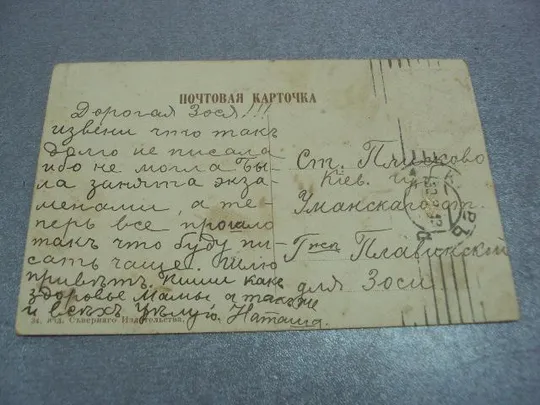 ПОЧТОВАЯ КАРТОЧКА
Дорогая Зося!!!
извени что такъ
долго не писала
ибо не могла Бы-
ла занята экза-
менами, а те-
перь все прошло
такъ что буду пи-
сать чаще. Шлю
привѣтъ. Пиши какъ
здоровье мамы а также
и всѣхъ Цѣлую Наташа.
Ст.
Кіев. губ.
Уманскаго
Г-жѣ Плавинской
для Зоси
изд. Сѣвернаго Издательства.